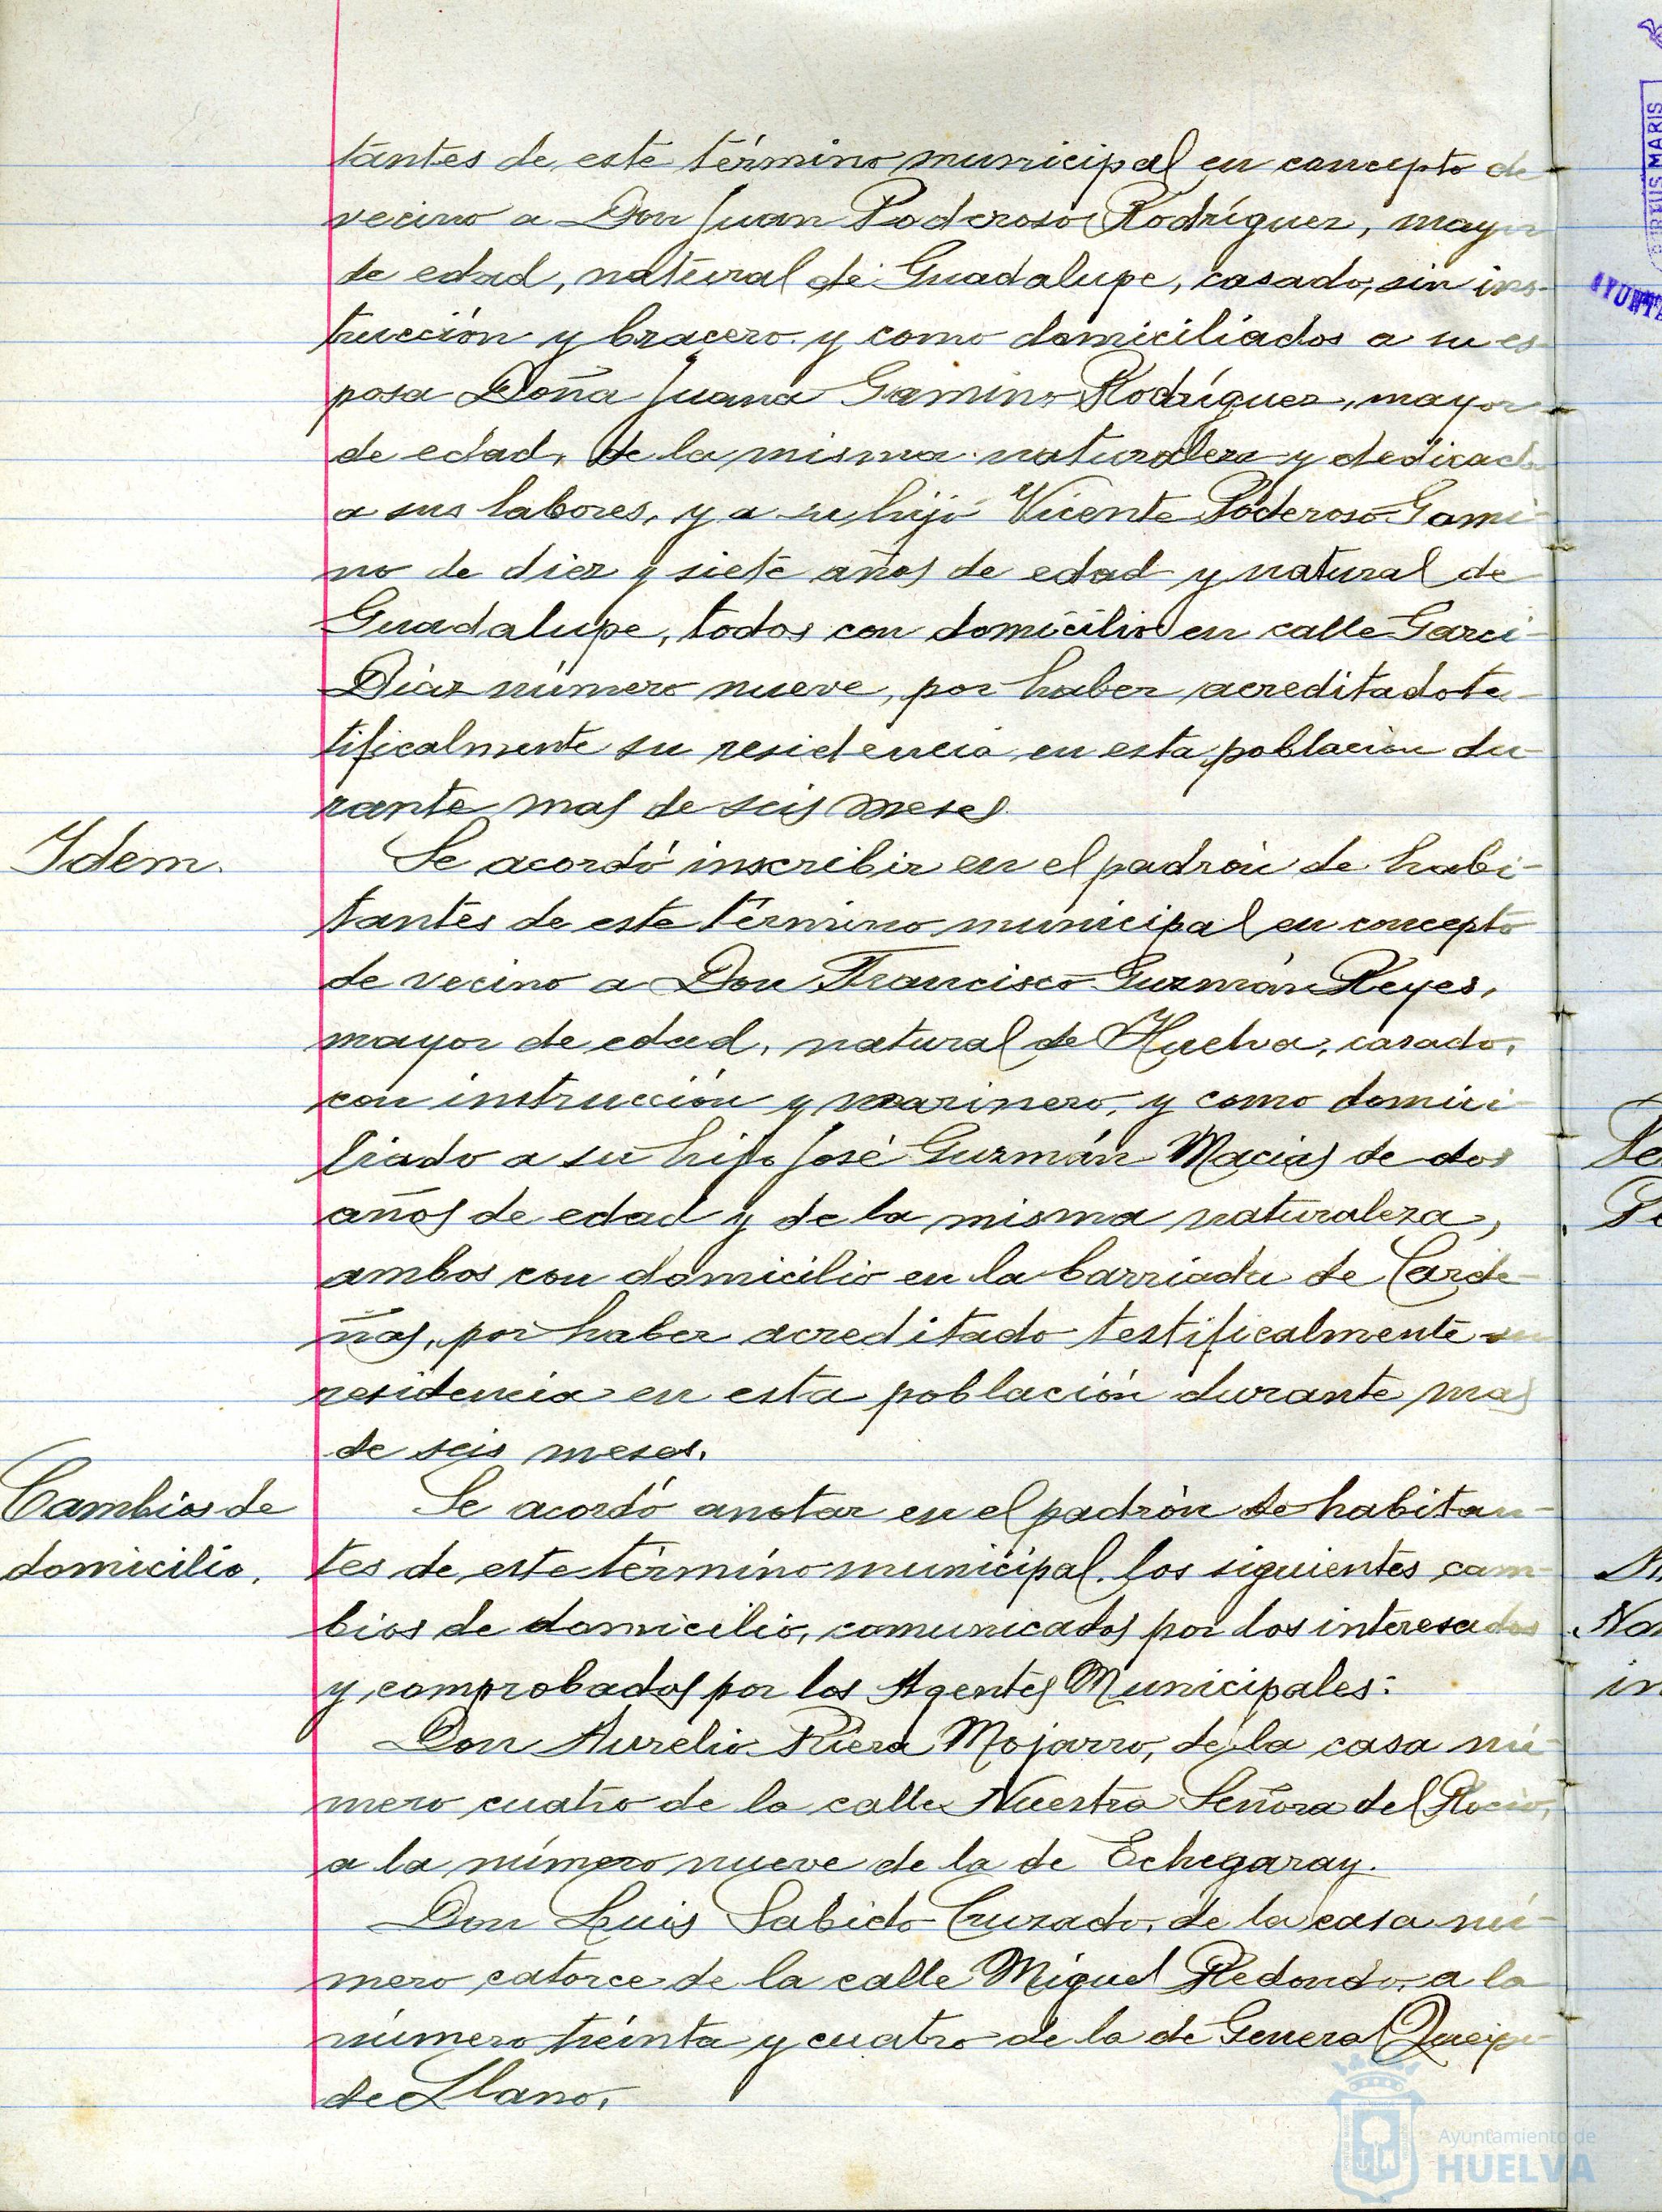 tantes de este término municipal en concepto de
vecino a Don Juan Poderoso Rodríguez, mayor
de edad, natural de Guadalupe, casado, sin ins-
trucción y bracero y como domiciliados a su es-
posa Doña Juana Gamino Rodríguez, mayor
de edad, de la misma naturaleza y dedicada
a sus labores, y a su hijo Vicente Poderoso Gami-
no de diez y siete años de edad y natural de
Guadalupe, todos con domicilio en calle Garci-
Díaz número nueve, por haber acreditado te-
tificalmente su residencia en esta poblacion du-
rante mas de seis meses
Idem.
Se acordó inscribir en el padrón de habi-
tantes de este término municipal en concepto
de vecino a Don Francisco Guzmán Reyes,
mayor de edad, natural de Huelva, casado,
con instrucción y marinero, y como domici-
liado a su hijo José Guzmán Macias de dos
años de edad y de la misma naturaleza,
ambos con domicilio en la barriada de Carde-
ñas, por haber acreditado testificalmente su
residencia en esta población durante mas
de seis meses.
Cambios de
domicilio.
Se acordó anotar en el padrón de habitan-
tes de este término municipal, los siguientes cam-
bios de domicilio, comunicados por los interesados
y comprobados por los Agentes Municipales:
Don Aurelio Riera Mojarro, de la casa nú-
mero cuatro de la calle Nuestra Señora del Rocio,
a la número nueve de la de Echegaray.
Don Luis Sabido Cruzado, de la casa nú-
mero catorce de la calle Miguel Redondo, a la
número treinta y cuatro de la de General Queipo
de Llano.
Ayuntamiento de
HUELVA